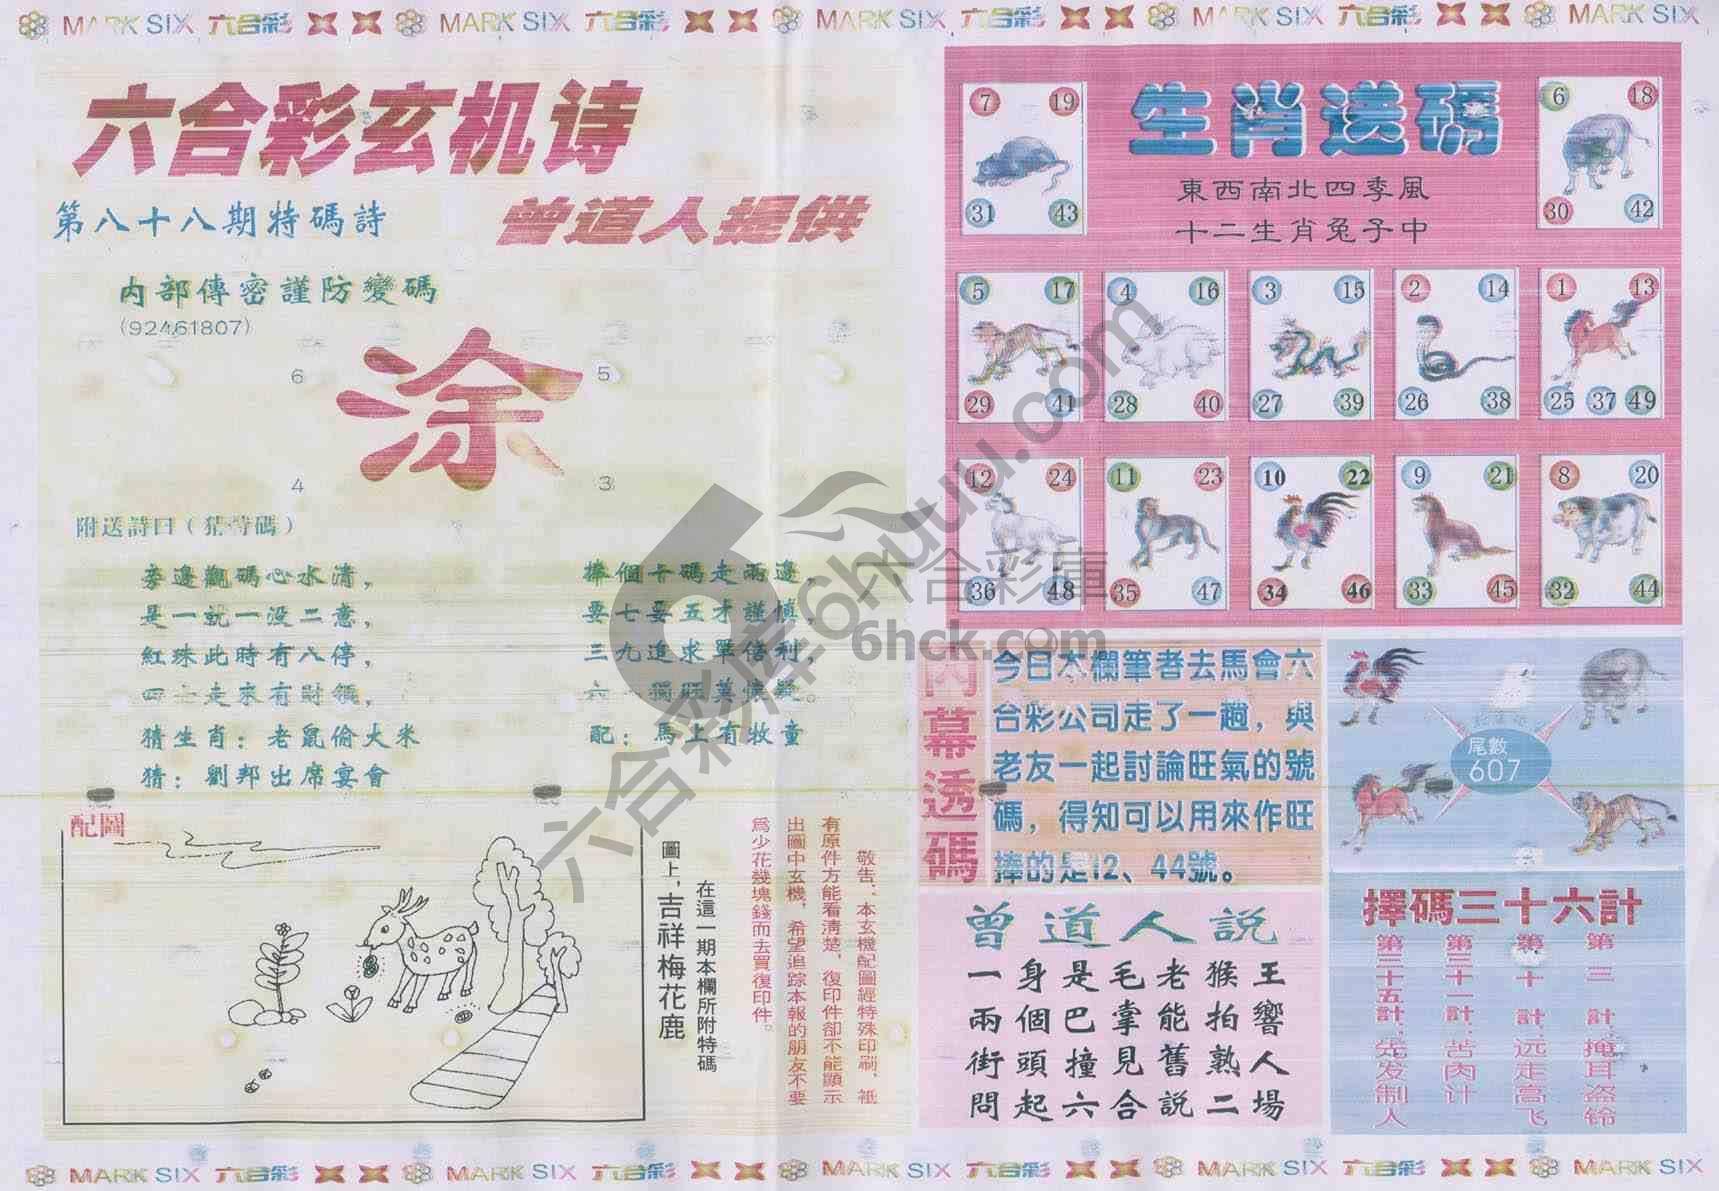 MARK SIX 六合彩 MARK SIX 六合彩 MARK SIX 六合彩 MARK SIX 六合彩 MARK SIX
六合彩玄机诗
第八十八期特碼詩
曾道人提供
内部傳密謹防變碼
(92461807)
6 5
涂
4 3
附送詩曰（猜特碼）
旁邊觀碼心水清，
是一就一没二意，
紅珠此時有八停，
四七走來有財領，
猜生肖：老鼠偷大米
猜：劉邦出席宴會
捧個卡碼走兩邊，
要七要五才謹慎，
三九追求單倍利，
六一獨旺莫懷疑。
配：馬上有牧童
配圖
圖上，吉祥梅花鹿
在這一期本欄所附特碼
敬告：本玄機配圖經特殊印刷，祗
有原件方能看清楚，復印件卻不能顯示
出圖中玄機，希望追踪本報的朋友不要
爲少花幾塊錢而去買復印件。
生肖送碼
東西南北四季風
十二生肖兔子中
7 19
31 43
6 18
30 42
5 17 4 16 3 15 2 14 1 13
29 41 28 40 27 39 26 38 25 37 49
12 24 11 23 10 22 9 21 8 20
36 48 35 47 34 46 33 45 32 44
内幕透碼
今日本欄筆者去馬會六
合彩公司走了一趟，與
老友一起討論旺氣的號
碼，得知可以用來作旺
捧的是12、44號。
尾數
607
曾道人説
一身是毛老猴王
兩個巴掌能拍響
街頭撞見舊熟人
問起六合説二場
擇碼三十六計
第三計：掩耳盗铃
第十計：远走高飞
第三十一計：苦肉计
第三十五計：先发制人
六合彩库6hutuu.com
六合彩庫
6hck.com
MARK SIX 六合彩 MARK SIX 六合彩 MARK SIX 六合彩 MARK SIX 六合彩 MARK SIX